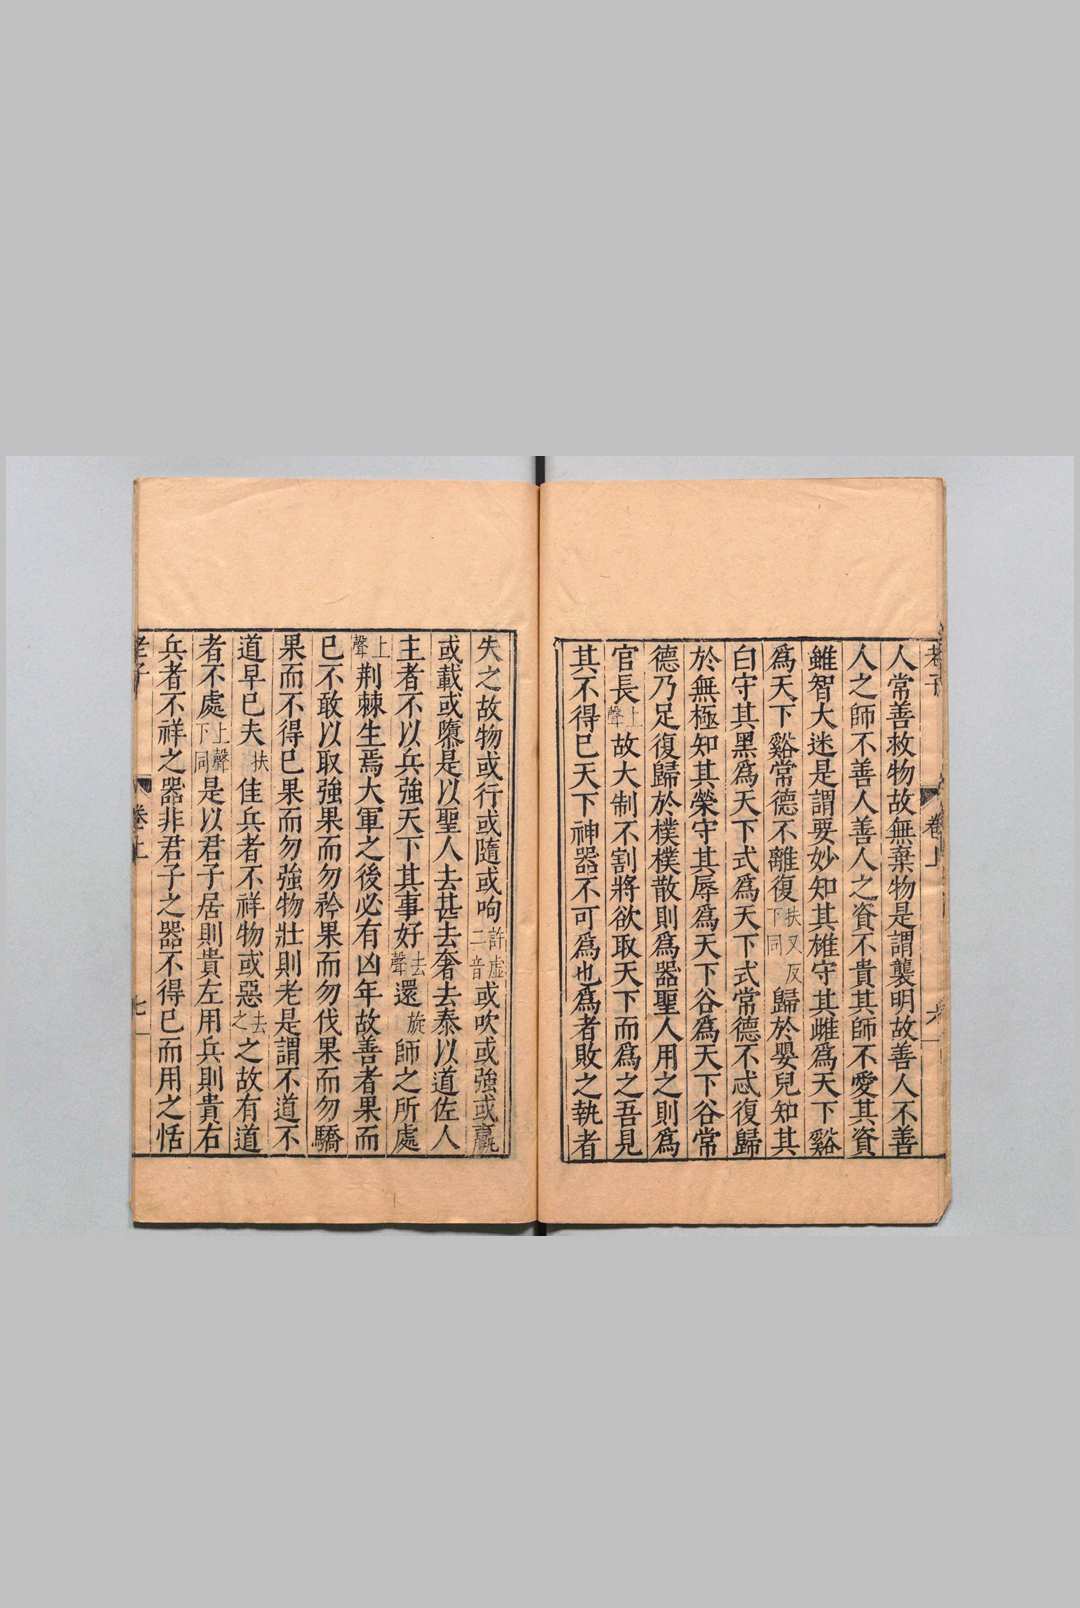 老子 卷上 六
人常善救物故無棄物是謂襲明故善人不善
人之師不善人善人之資不貴其師不愛其資
雖智大迷是謂要妙知其雄守其雌爲天下谿
爲天下谿常德不離復扶又反下同歸於嬰兒知其
白守其黑爲天下式爲天下式常德不忒復歸
於無極知其榮守其辱爲天下谷爲天下谷常
德乃足復歸於樸樸散則爲器聖人用之則爲
官長上聲故大制不割將欲取天下而爲之吾見
其不得已天下神器不可爲也爲者敗之執者
失之故物或行或隨或呴許虛二音或吹或強或羸
或載或隳是以聖人去甚去奢去泰以道佐人
主者不以兵強天下其事好去聲還旋師之所處
上聲荆棘生焉大軍之後必有凶年故善者果而
已不敢以取強果而勿矜果而勿伐果而勿驕
果而不得已果而勿強物壯則老是謂不道不
道早已夫扶佳兵者不祥物或惡去之之故有道
者不處上聲下同是以君子居則貴左用兵則貴右
兵者不祥之器非君子之器不得已而用之恬
老子 卷上 七